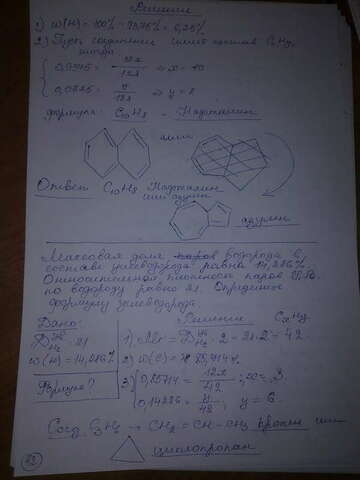 Решение
1) w(H) = 100% - 93,75% = 6,25%
2) Пусть соединение имеет состав CxHy,
тогда
0,9375 = 12x / 128 => x = 10
0,0625 = y / 128 => y = 8
формула C10H8 - Нафталин
или
Ответ C10H8 Нафталин
или азулен
азулен
Массовая доля водорода в
составе углеводорода равна 14,286%.
Относительная плотность паров УВ
по водороду равна 21. Определите
формулу углеводорода
Дано:
Решение CxHy
D H2 = 21
w(H) = 14,286%
Формула?
1) Mr = D H2 · 2 = 21·2 = 42
2) w(C) = 85,714%
3) 0,85714 = 12x / 42; x = 3
0,14286 = y / 42, y = 6
Соед. C3H6 → CH2 = CH - CH3 пропен или
циклопропан